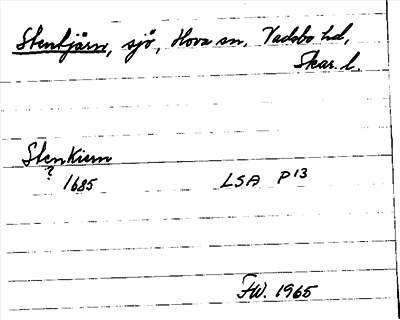 Stentjärn, sjö, Hova sn, Vadsbo hd,
Skar. l.
StenKiern
? 1685 LSA P 13
FW. 1965